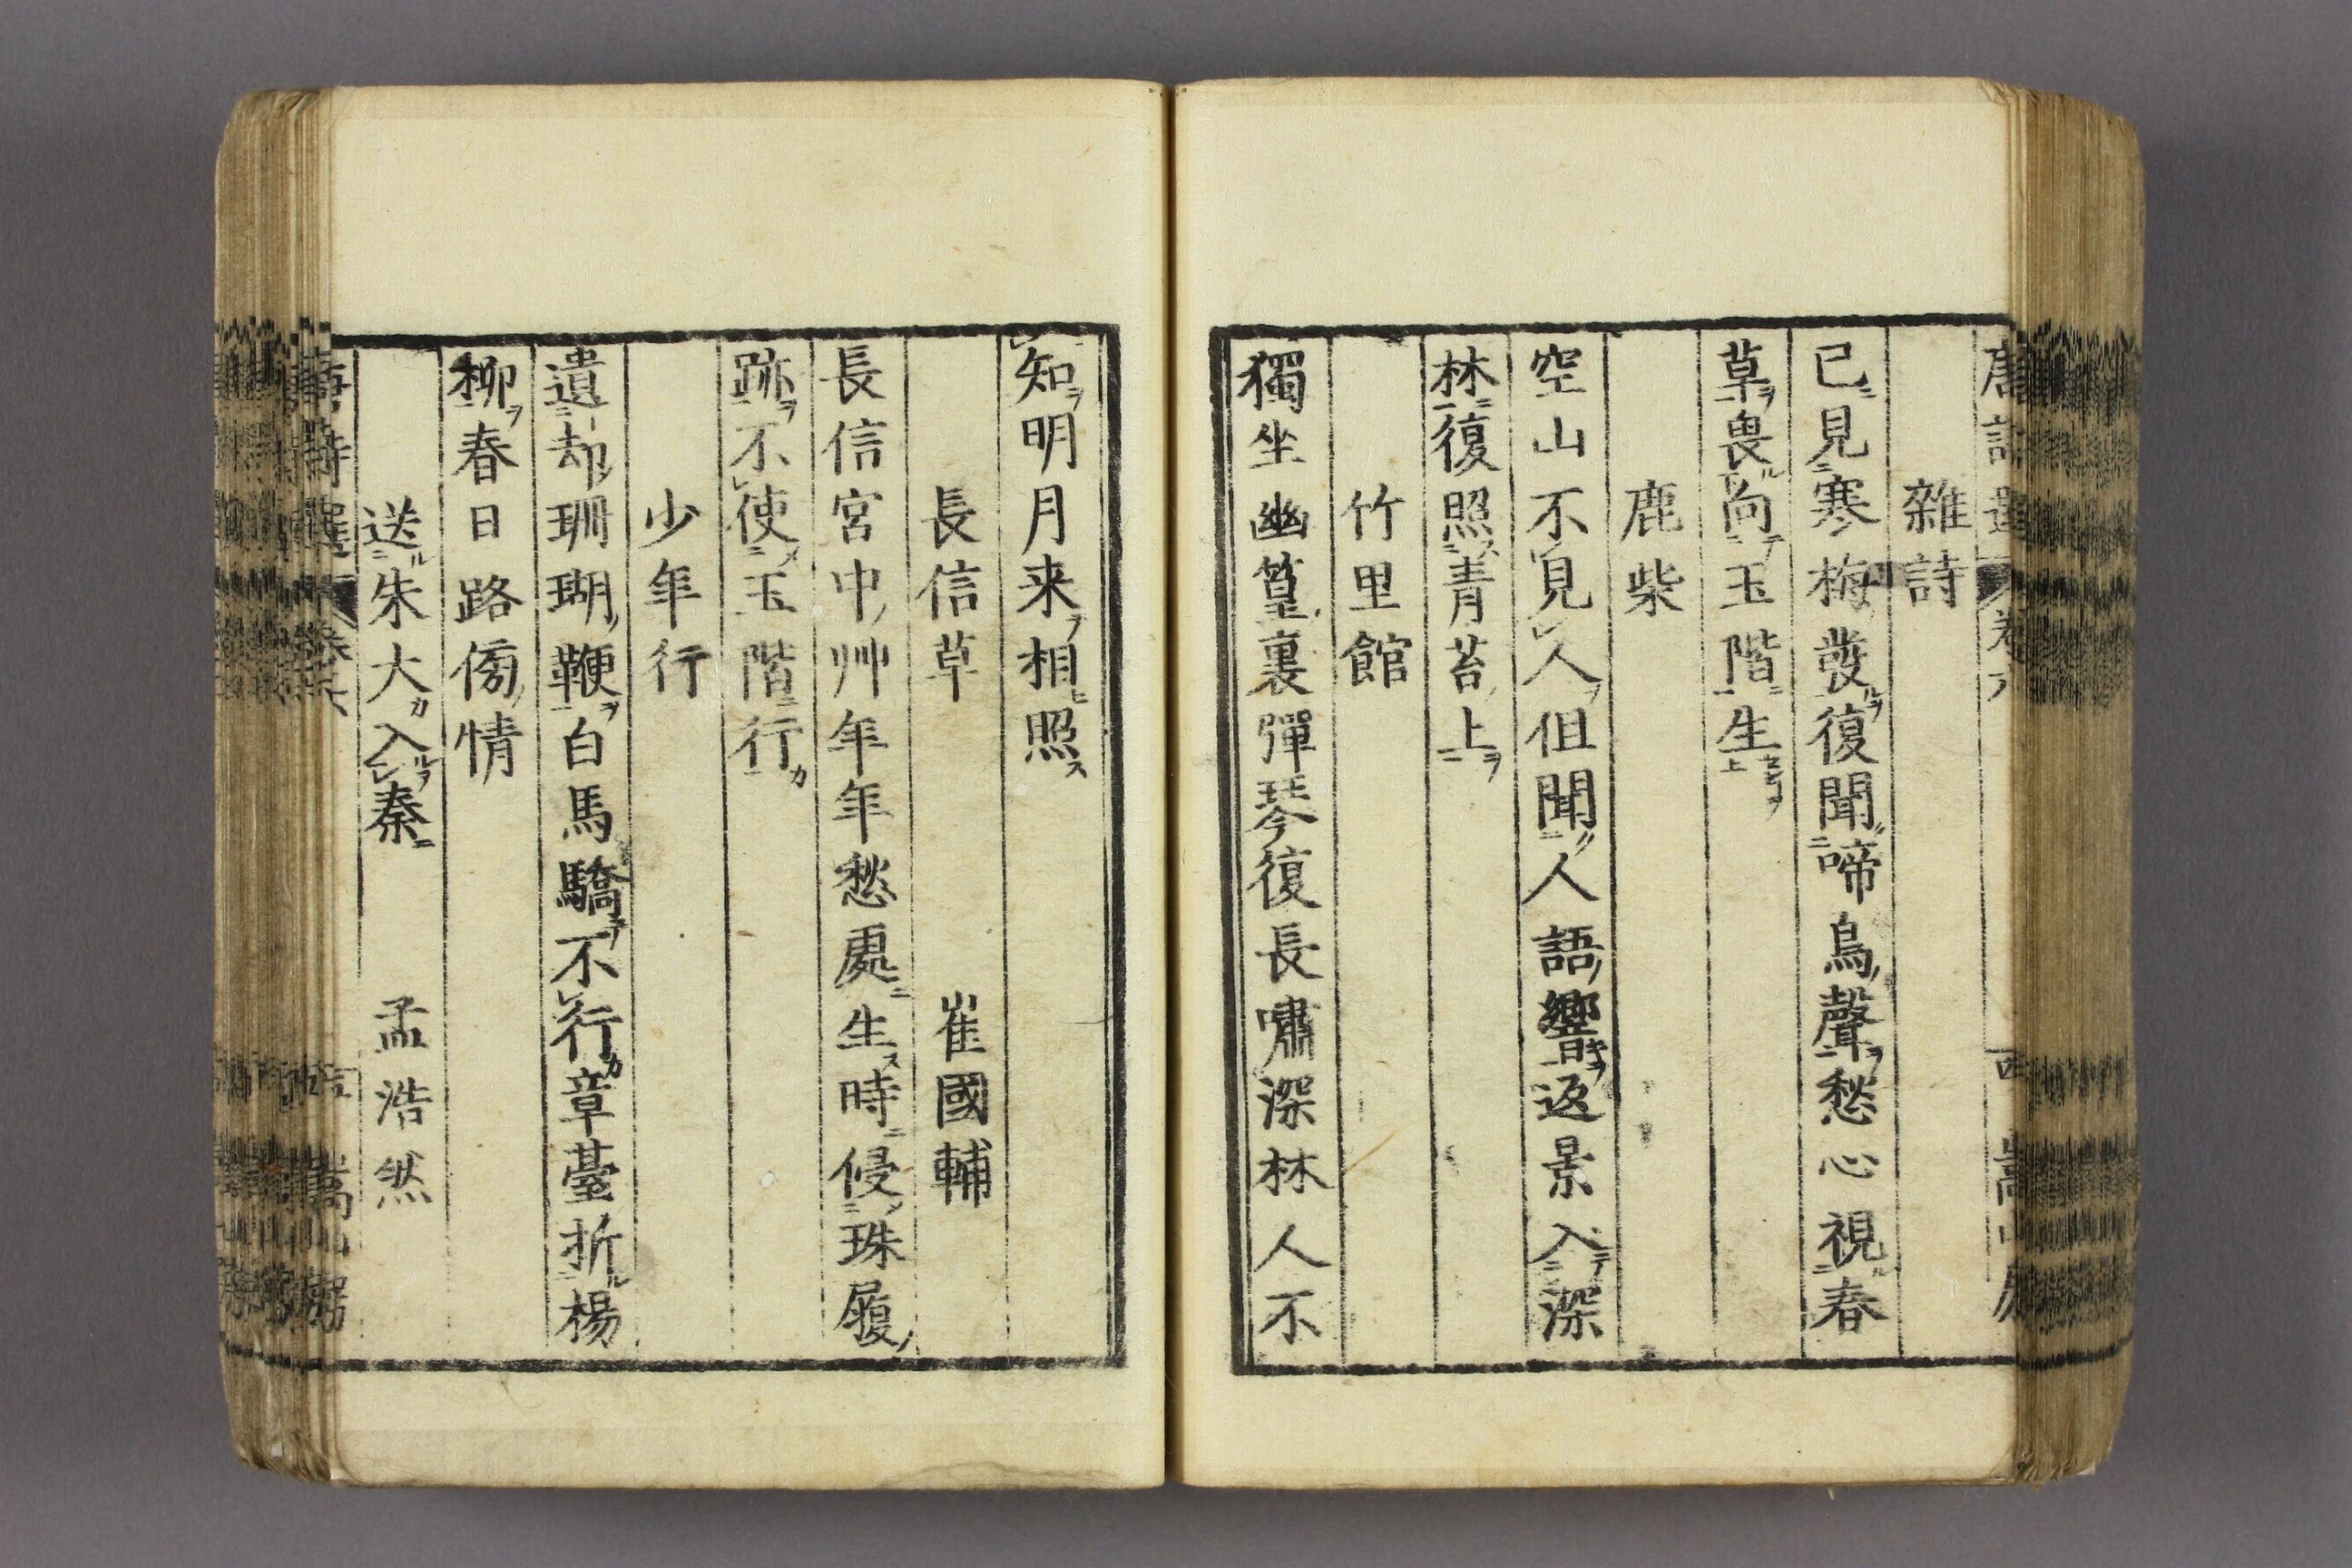 雜詩
已見寒梅發復聞啼鳥聲愁心視春
草畏向玉階生
鹿柴
空山不見人但聞人語響返景入深
林復照青苔上
竹里館
獨坐幽篁裏彈琴復長嘯深林人不
知明月来相照
長信草 崔國輔
長信宮中艸年年愁處生時侵珠履
跡不使玉階行
少年行
遺却珊瑚鞭白馬驕不行章臺折楊
柳春日路傍情
送朱大入秦 孟浩然